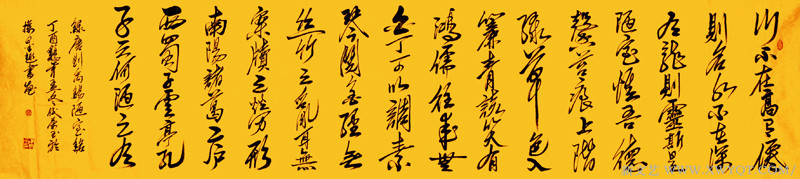 山不在高有僊
則名水不在深
有龍則靈斯是
陋室惟吾德
馨苔痕上階
綠草色入
簾青談笑有
鴻儒往來無
白丁可以調素
琴閱金經無
絲竹之亂耳無
案牘之勞形
南陽諸葛廬
西蜀子雲亭孔
子云何陋之有
錄唐劉禹錫陋室銘
丁酉